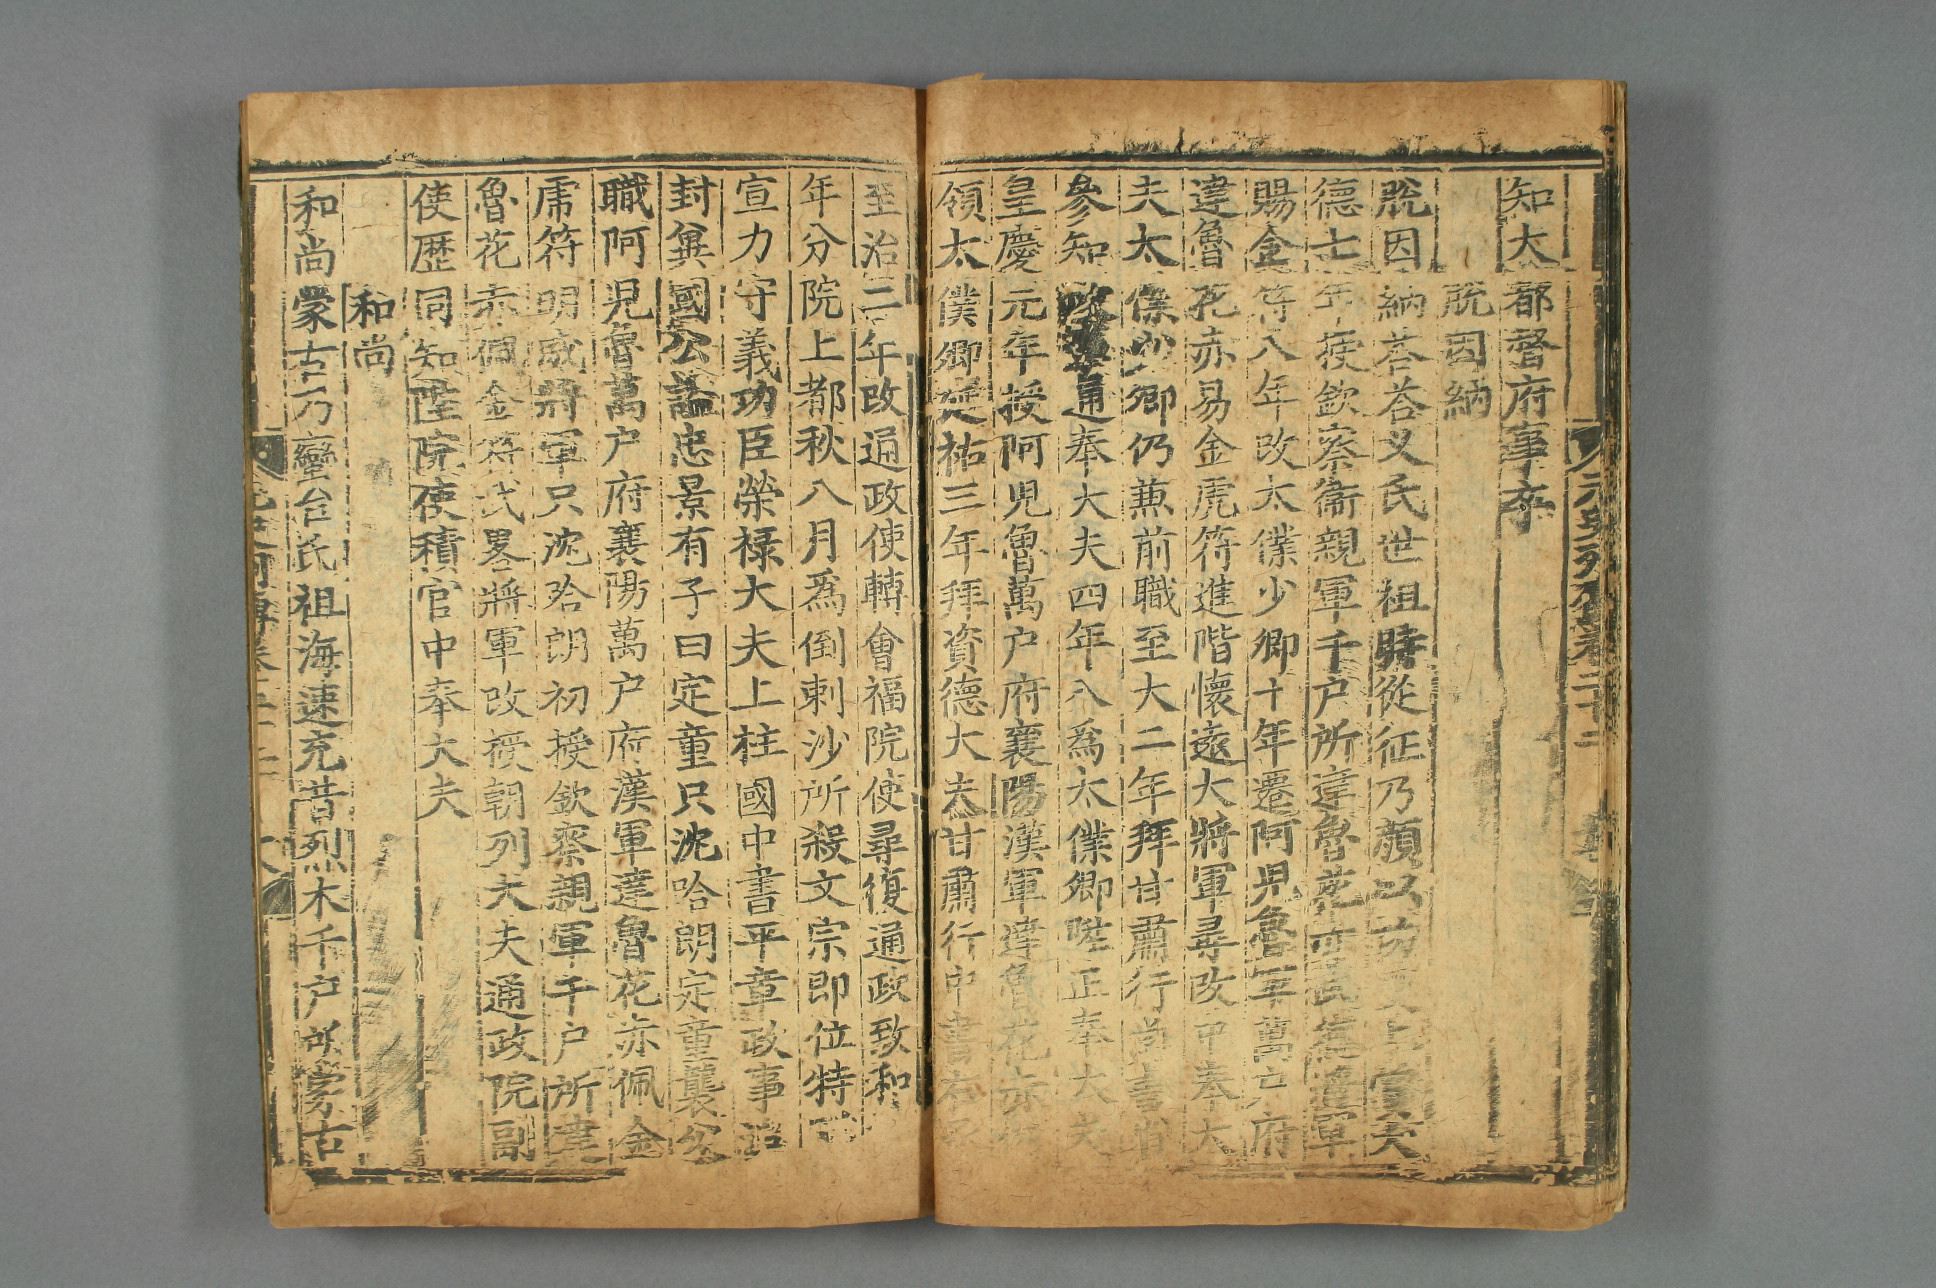 知大都督府事卒
脫因納
脫因納荅荅义氏世祖時從征乃顔以功
德七年授欽察衞親軍千户所達魯花赤武德將軍
賜金符八年改太僕少卿十年遷阿児魯軍萬户府
達魯花赤易金虎符進階懷遠大將軍尋改中奉大
夫太僕少卿仍兼前職至大二年拜甘肅行尚書省
參知政事通奉大夫四年入爲太僕卿陞正奉大夫
皇慶元年授阿児魯萬户府襄陽漢軍達魯花赤
領太僕卿延祐三年拜資德大夫甘肅行中書右
至治二年改通政使轉會福院使尋復通政致和
年分院上都秋八月爲倒剌沙所殺文宗即位特
宣力守義功臣榮禄大夫上柱國中書平章政事追
封兾國公謚忠景有子曰定童只沈哈朗定童襲父
職阿児魯萬户府襄陽萬户府漢軍達魯花赤佩金
虎符明威將軍只沈哈朗初授欽察親軍千户所達
魯花赤佩金符武畧將軍改授朝列大夫通政院副
使歴同知陞院使積官中奉大夫
和尚
和尚蒙古乃蠻台氏祖海速充昔烈木千户所蒙古